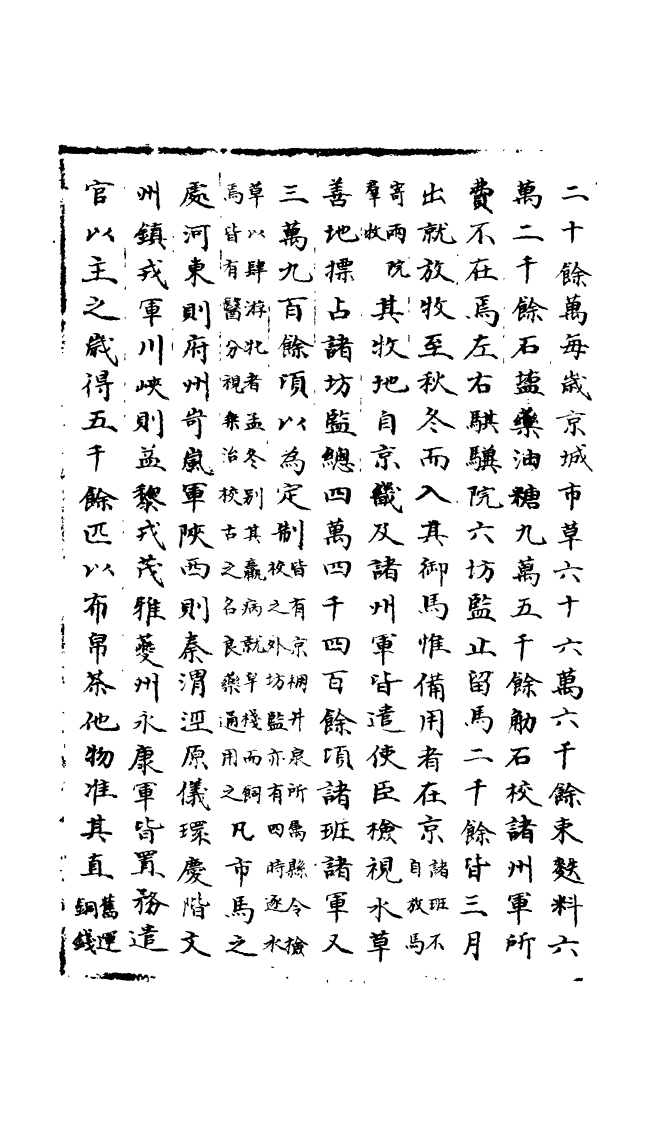 二十餘萬每歲京城市草六十六萬六千餘束麩料六
萬二千餘石鹽藥油糖九萬五千餘觔石校諸州軍所
費不在焉左右騏驥院六坊監止留馬二千餘皆三月
出就放牧至秋冬而入其御馬惟備用者在京諸班不自放馬
寄兩院羣牧其牧地自京畿及諸州軍皆遣使臣檢視水草
善地摽占諸坊監總四萬四千四百餘頃諸班諸軍又
三萬九百餘頃以為定制皆有京棚井泉所屬縣令檢校之外坊監亦有四時逐水
草以肆游牝者孟冬别其羸病就皁棧而飼馬皆有醫分視樂治校古之名良藥通用之凡市馬之
處河東則府州岢嵐軍陜西則秦渭涇原儀環慶階文
州鎮戎軍川峽則益黎戎茂雅夔州永康軍皆置務遣
官以主之歲得五千餘匹以布帛茶他物准其直舊運銅錢